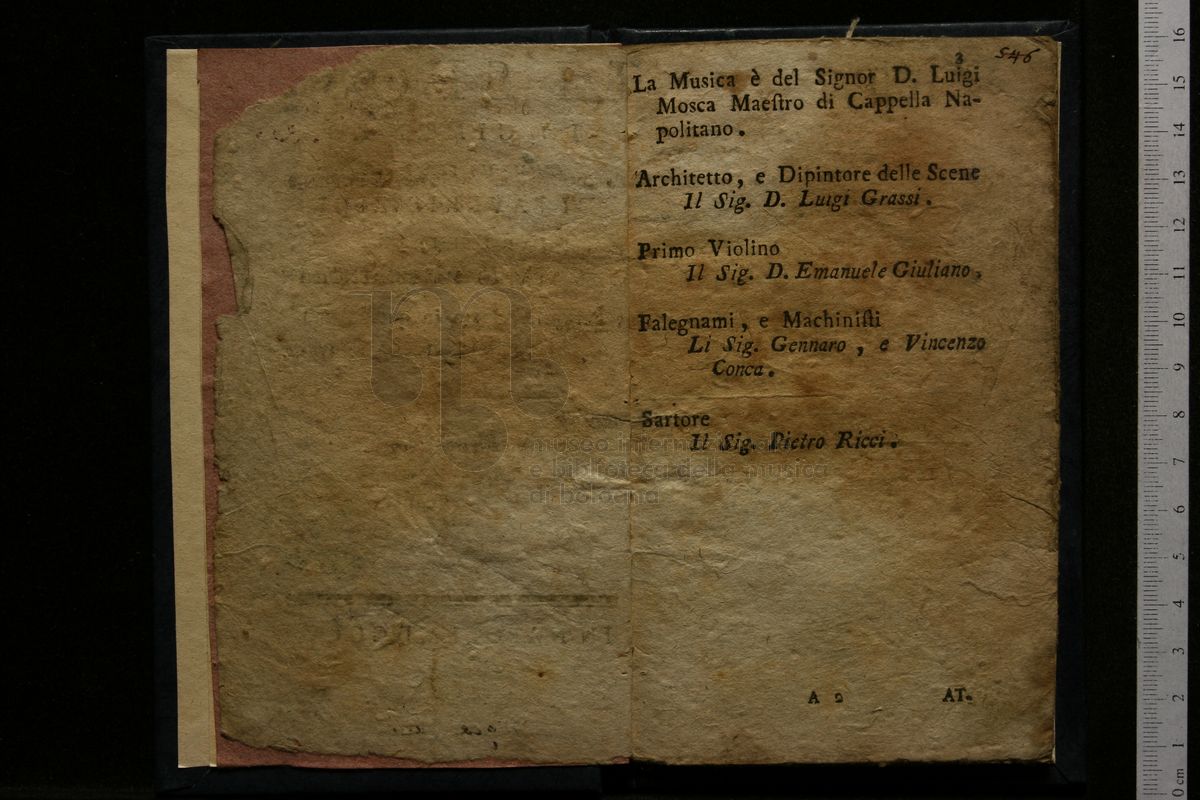 3
546
La Musica è del Signor D. Luigi
Mosca Maeſtro di Cappella Na-
politano.
Architetto, e Dipintore delle Scene
Il Sig. D. Luigi Grassi.
Primo Violino
Il Sig. D. Emanuele Giuliano,
Falegnami, e Machiniſti
Li Sig. Gennaro, e Vincenzo
Conca.
Sartore
Il Sig. Pietro Ricci.
museo internazionale
e biblioteca della musica
di bologna
A 2 AT-
0 cm 1 2 3 4 5 6 7 8 9 10 11 12 13 14 15 16